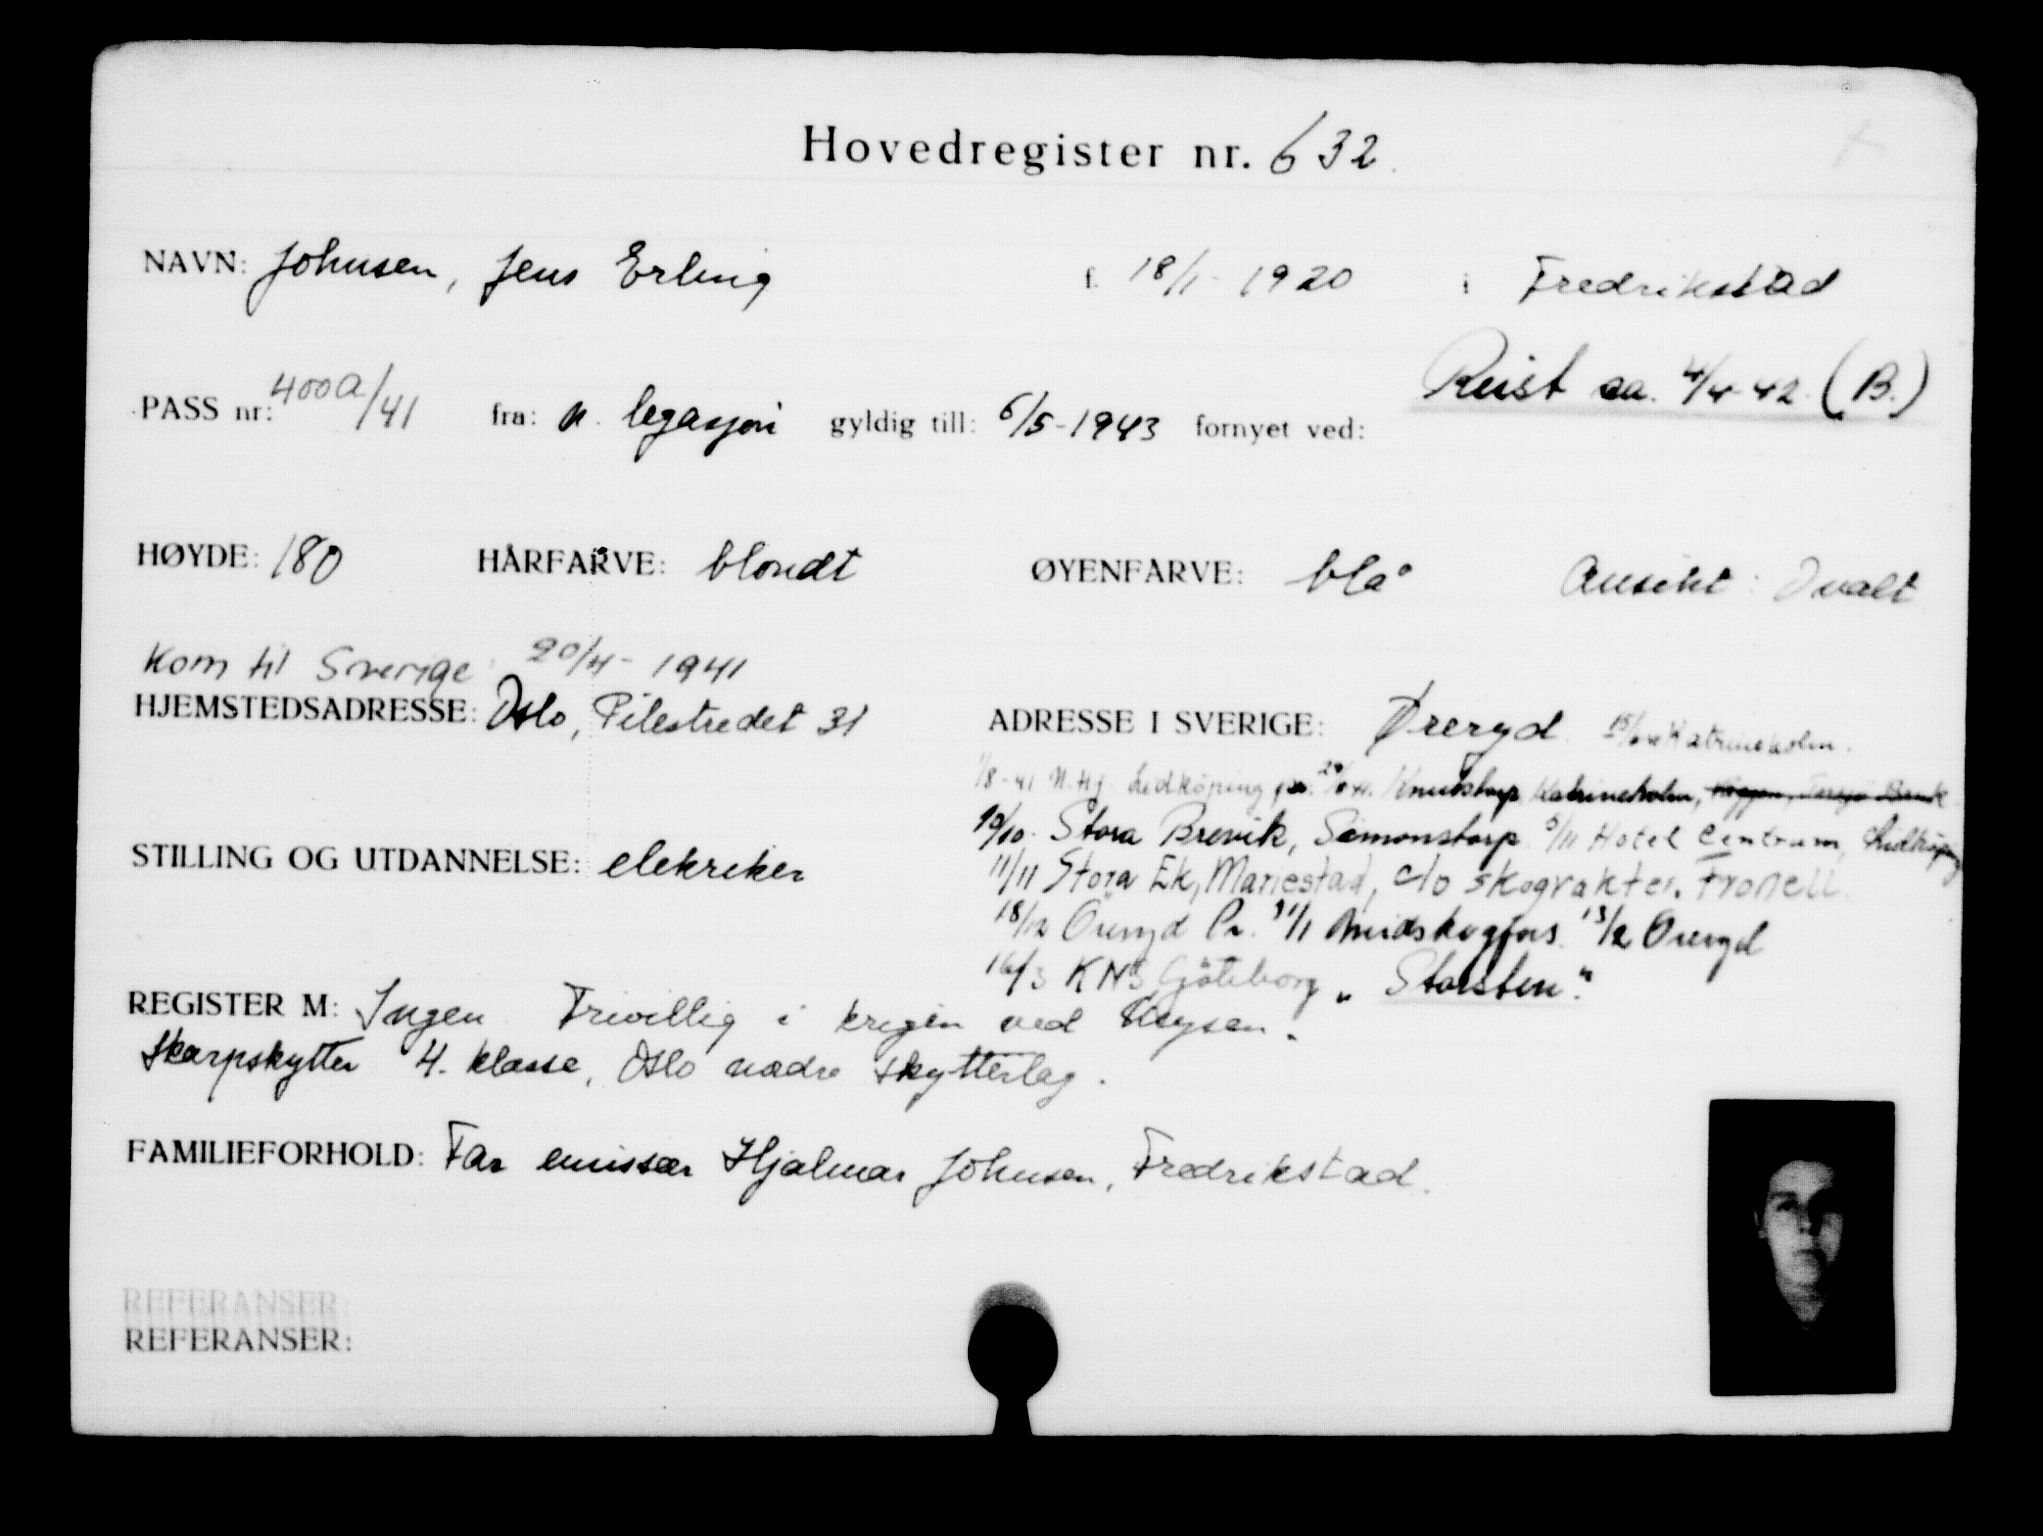 Hovedregister nr. 632
NAVN: Johnsen, Jens Erling f. 18/1- 1920 i Fredrikstad
Reist ca. 4/4-42. (B.)
PASS nr: 400a/41 fra: n. legasjon gyldig till: 6/5-1943 fornyet ved:
HØYDE: 180 HÅRFARVE: blondt ØYENFARVE: blå Ansikt: Ovalt
Kom til Sverige: 20/4- 1941
HJEMSTEDSADRESSE: Oslo, Pilestredet 31
ADRESSE I SVERIGE: Øreryd. Katrineholm.
1/8-41 N.Hj. Lidköping Katrineholm,
Stora Brevik, Simonstorp 5/11 Hotel Centrum, Lidköping
11/11 Stora Ek, Mariestad, c/o skogvakter. Fronell
18/12 Öreryd Pr. 31/1 Munkskogfors 13/2 Öreryd
16/3 KNS Göteborg „ Storsten"
STILLING OG UTDANNELSE: elekriker
REGISTER M: Ingen Frivillig i krigen ved
Skarpskytter 4. klasse, Oslo nedre skytterlag.
FAMILIEFORHOLD: Far emissær Hjalmar Johnsen, Fredrikstad.
REFERANSER:
REFERANSER: